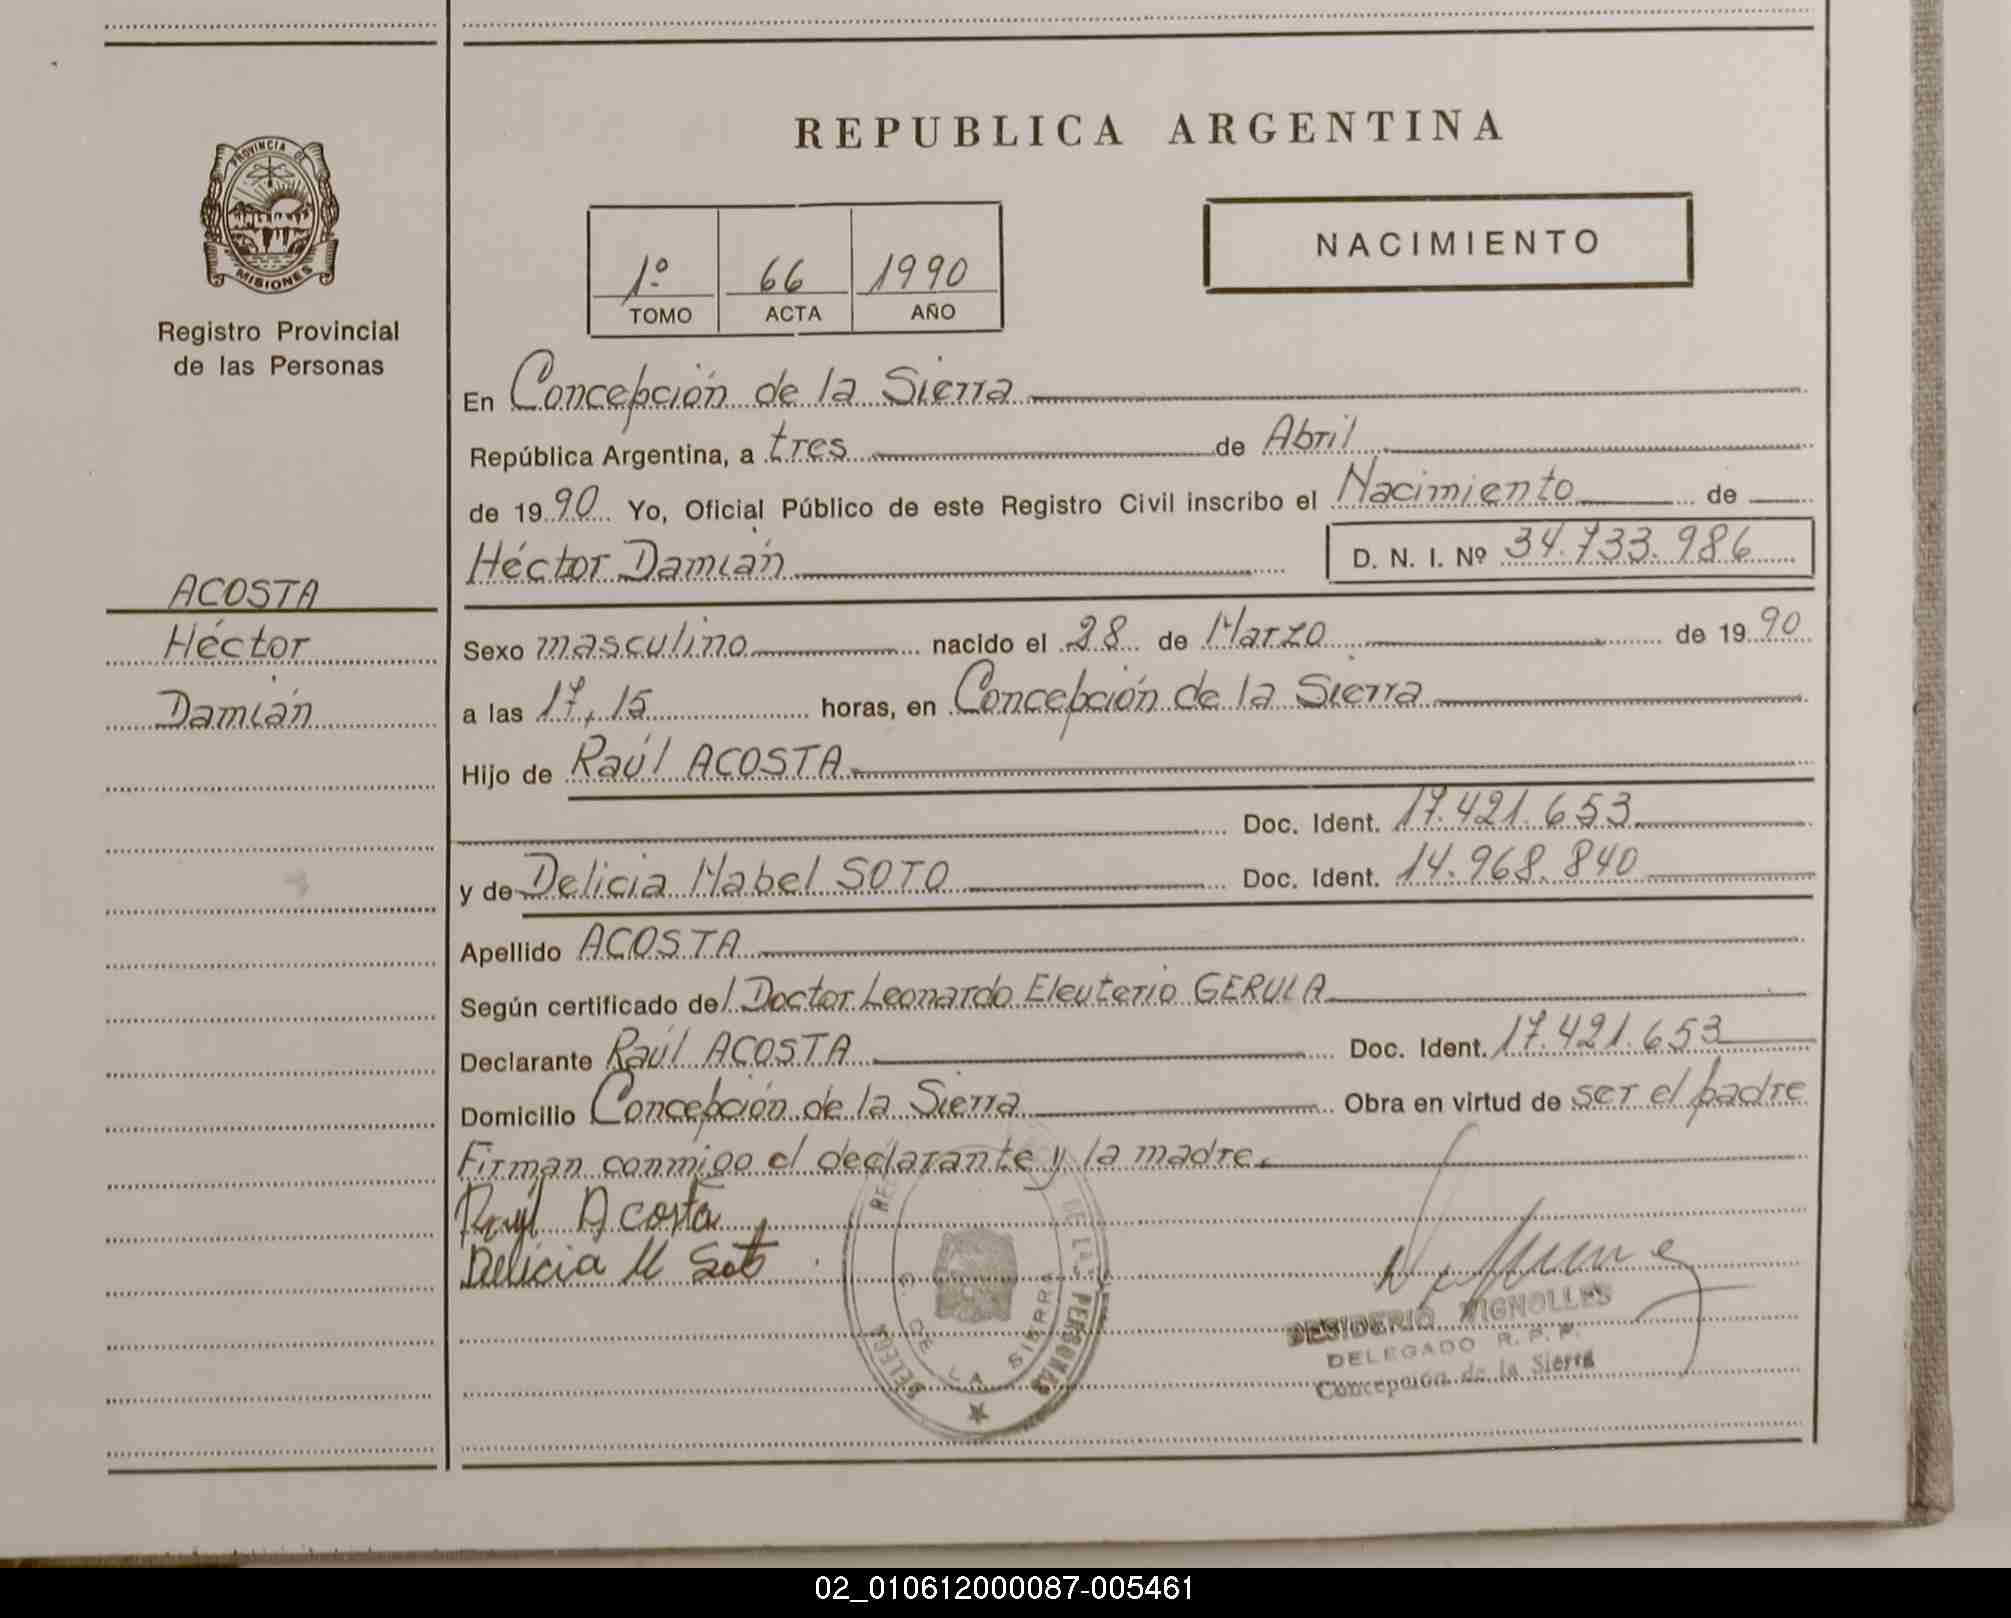 REPUBLICA ARGENTINA
PROVINCIA DE
MISIONES
Registro Provincial
de las Personas
1º 66 1990
TOMO ACTA AÑO
NACIMIENTO
En Concepción de la Sierra
República Argentina, a tres de Abril
de 1990 Yo, Oficial Público de este Registro Civil inscribo el Nacimiento de
Héctor Damián D. N. I. Nº 34.733.986
ACOSTA
Héctor
Damián
Sexo masculino nacido el 28 de Marzo de 1990
a las 17,15 horas, en Concepción de la Sierra
Hijo de Raúl ACOSTA
Doc. Ident. 17.421.653
y de Delicia Mabel SOTO Doc. Ident. 14.968.840
Apellido ACOSTA
Según certificado del Doctor Leonardo Eleuterio GERULA
Declarante Raúl ACOSTA Doc. Ident. 17.421.653
Domicilio Concepción de la Sierra Obra en virtud de ser el padre
Firman conmigo el declarante y la madre.
Raúl Acosta
Delicia M Soto
DE LAS PERSONAS
C. DE LA SIERRA
DESIDERIO VIGNOLLES
DELEGADO R. P. P.
Concepción de la Sierra
02_010612000087-005461